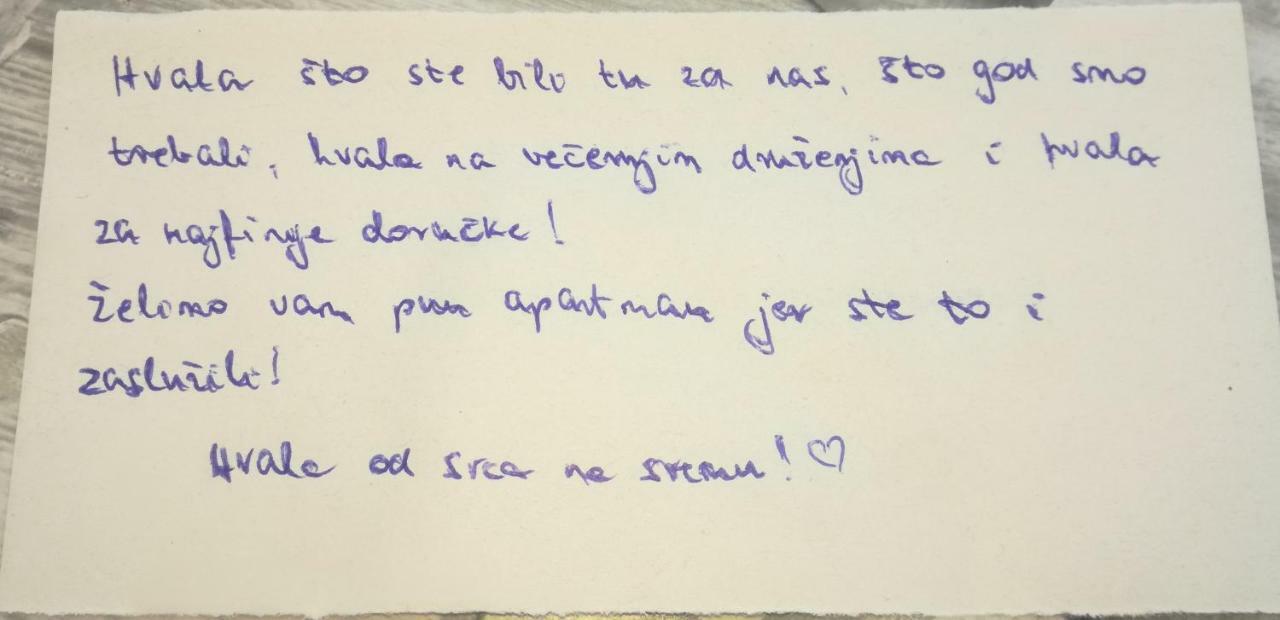 Hvala što ste bili tu za nas, što god smo
trebali, hvala na večernjim druženjima i hvala
za najfinije doručke!
Želimo vam pun apartman jer ste to i
zaslužili!
Hvala od srca na svemu! ♡